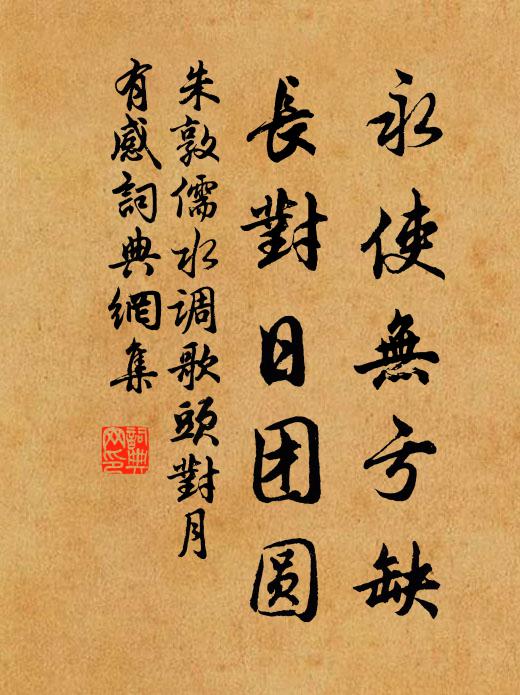 永使無亏缺
長對日团圆
朱敦儒水调歌頭對月
有感詞典網集
詞典网印